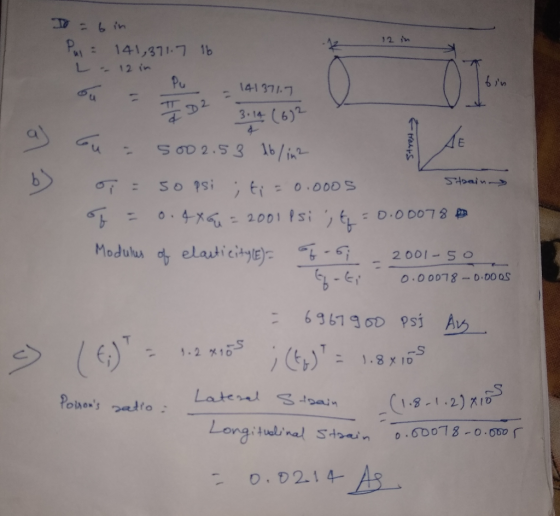 D = 6 in
Pu1 = 141,371.7 lb
L = 12 in
12 in
6 in
σu = Pu / (π/4 D²) = 141371.7 / (3.14/4 (6)²)
a) σu = 5002.53 lb/in²
Stress→
E
Strain→
b) σi = 50 psi ; ti = 0.0005
σf = 0.4×σu = 2001 psi ; tf = 0.00078
Modulus of elasticity(E) = (σf - σi) / (tf - ti) = (2001-50) / (0.00078-0.0005)
= 6967900 psi Ans
c) (ti)ᵀ = 1.2×10⁻⁵ ; (tf)ᵀ = 1.8×10⁻⁵
Poison's ratio : Lateral Strain / Longitudinal Strain = (1.8-1.2)×10⁻⁵ / (0.00078-0.0005)
= 0.0214 As